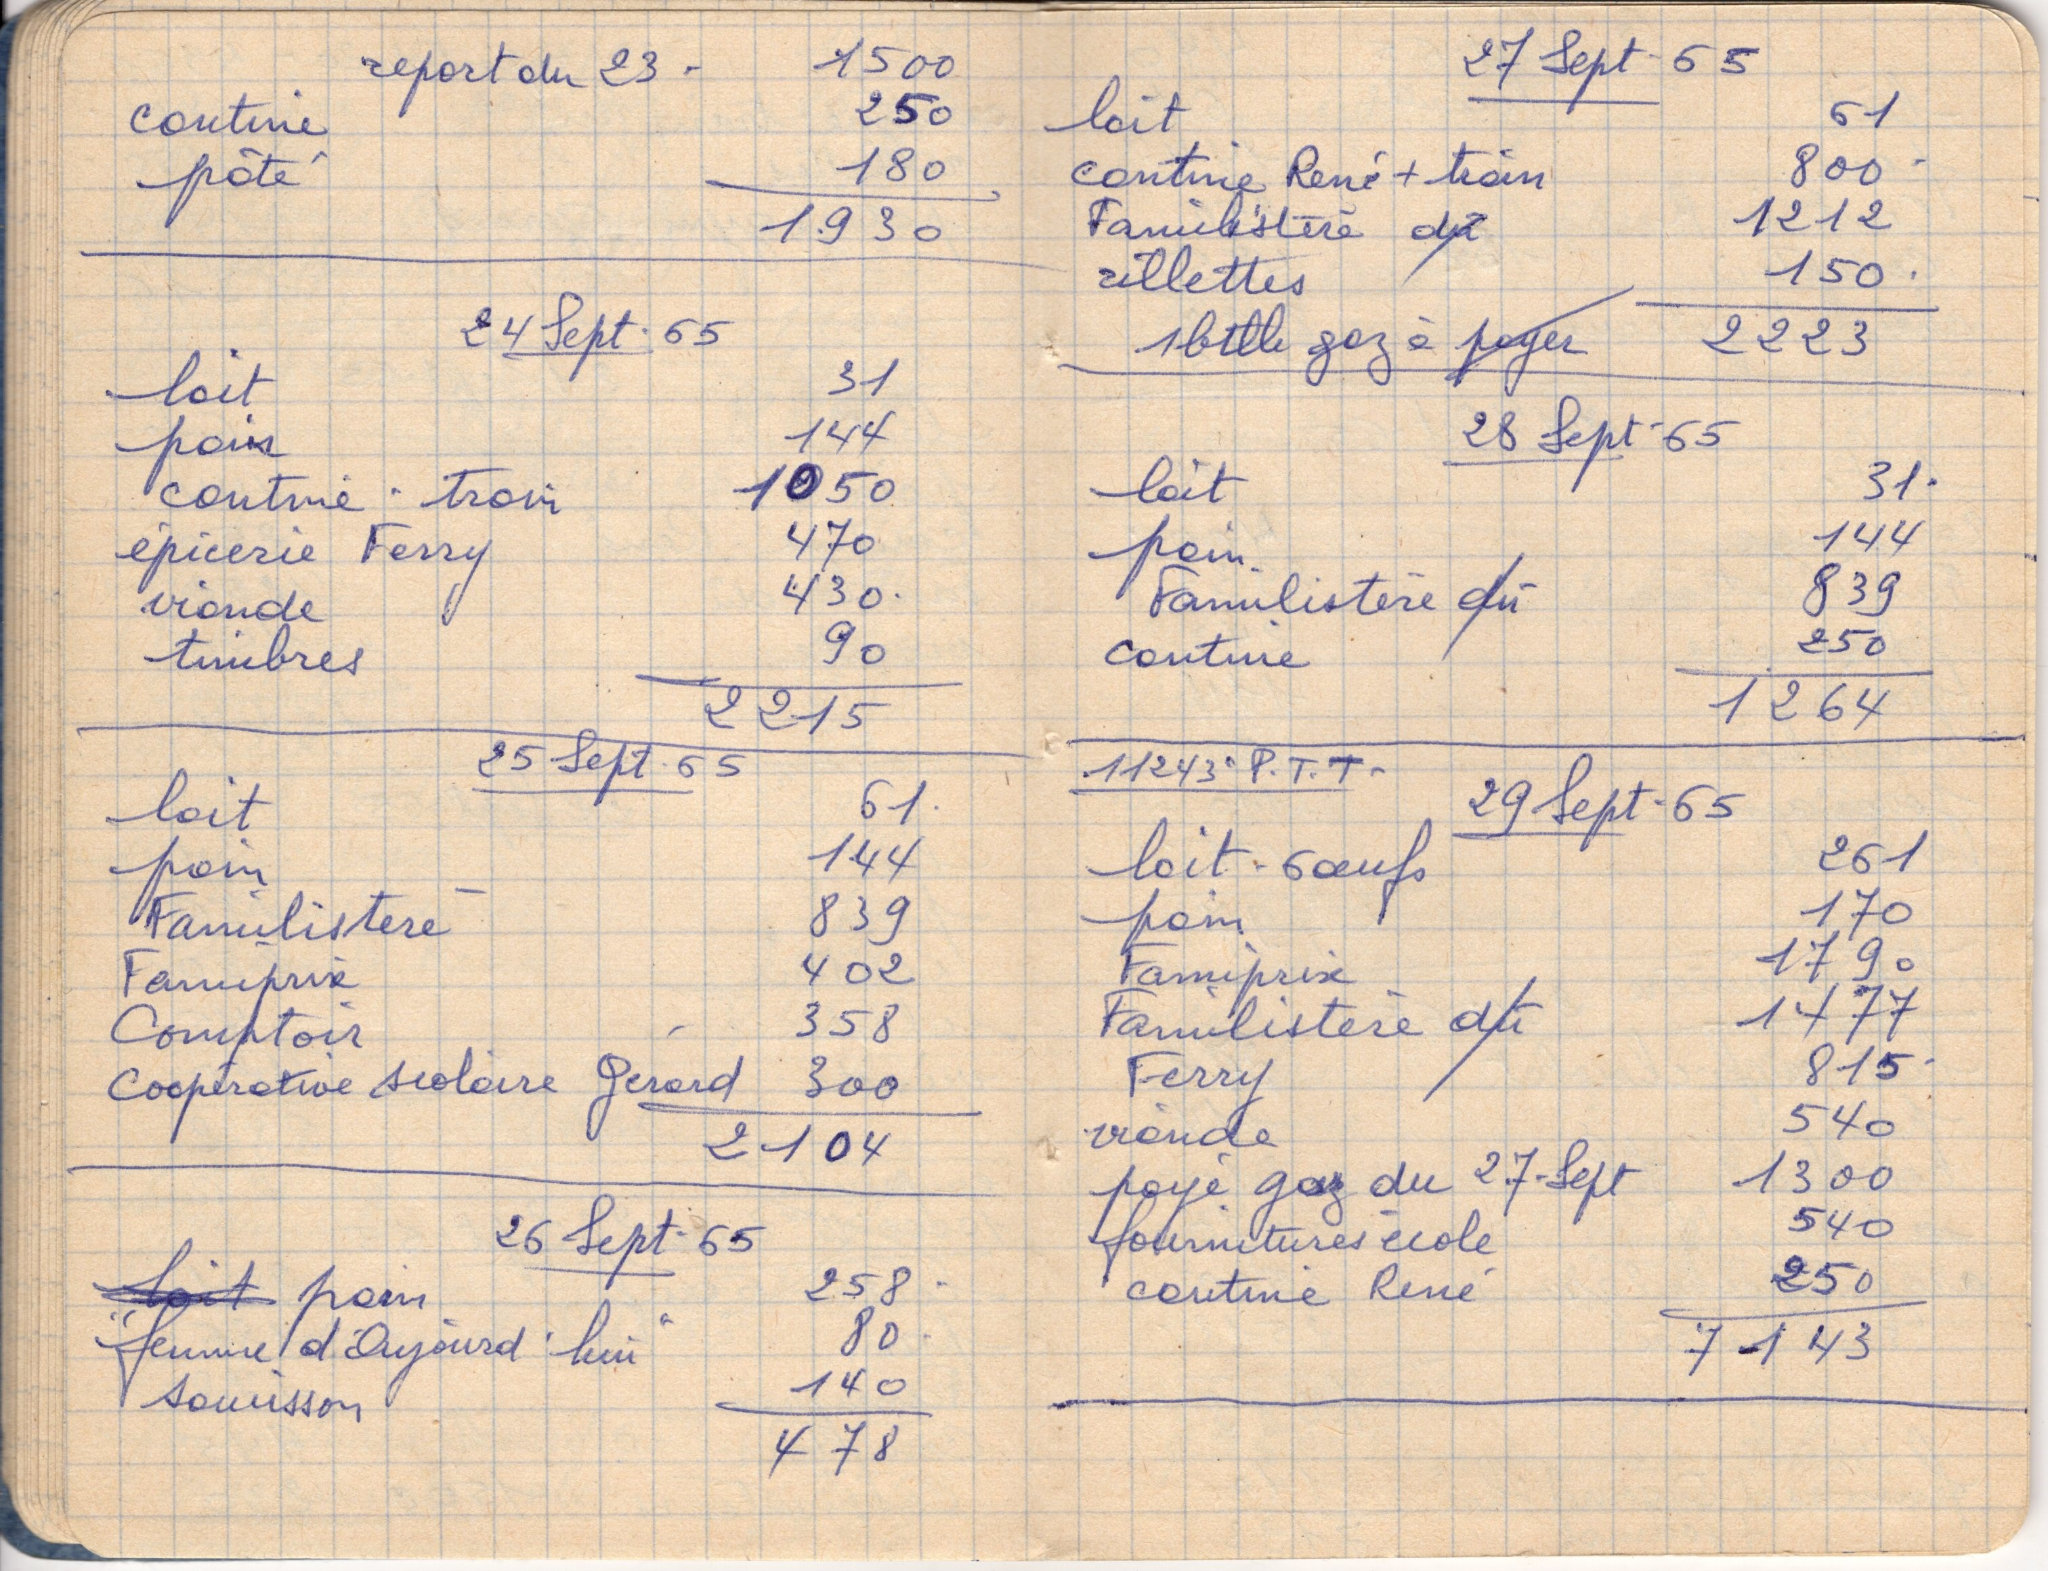 report du 23 - 1500
cantine 250
pâté 180
1930
24 Sept. 65
lait 31
pain 144
cantine - train 1050
épicerie Ferry 470
viande 430.
timbres 90
2215
25 Sept. 65
lait 61.
pain 144
Familistère 839
Famiprix 402
Comptoir 358
Coopérative scolaire Gérard 300
2104
26 Sept. 65
lait pain 258.
"femme d'Aujourd'hui" 80.
saucisson 140
478
27 Sept. 65
lait 61
cantine René + train 800.
Familistère dû 1212
rillettes 150.
1 btlle gaz à payer 2223
28 Sept. 65
lait 31.
pain 144
Familistère dû 839
cantine 250
1264
11243 P.T.T.
29 Sept. 65
lait - 6 œufs 261
pain 170
Famiprix 1790
Familistère dû 1477
Ferry 815.
viande 540
payé gaz du 27-Sept 1300
fournitures école 540
cantine René 250
7143